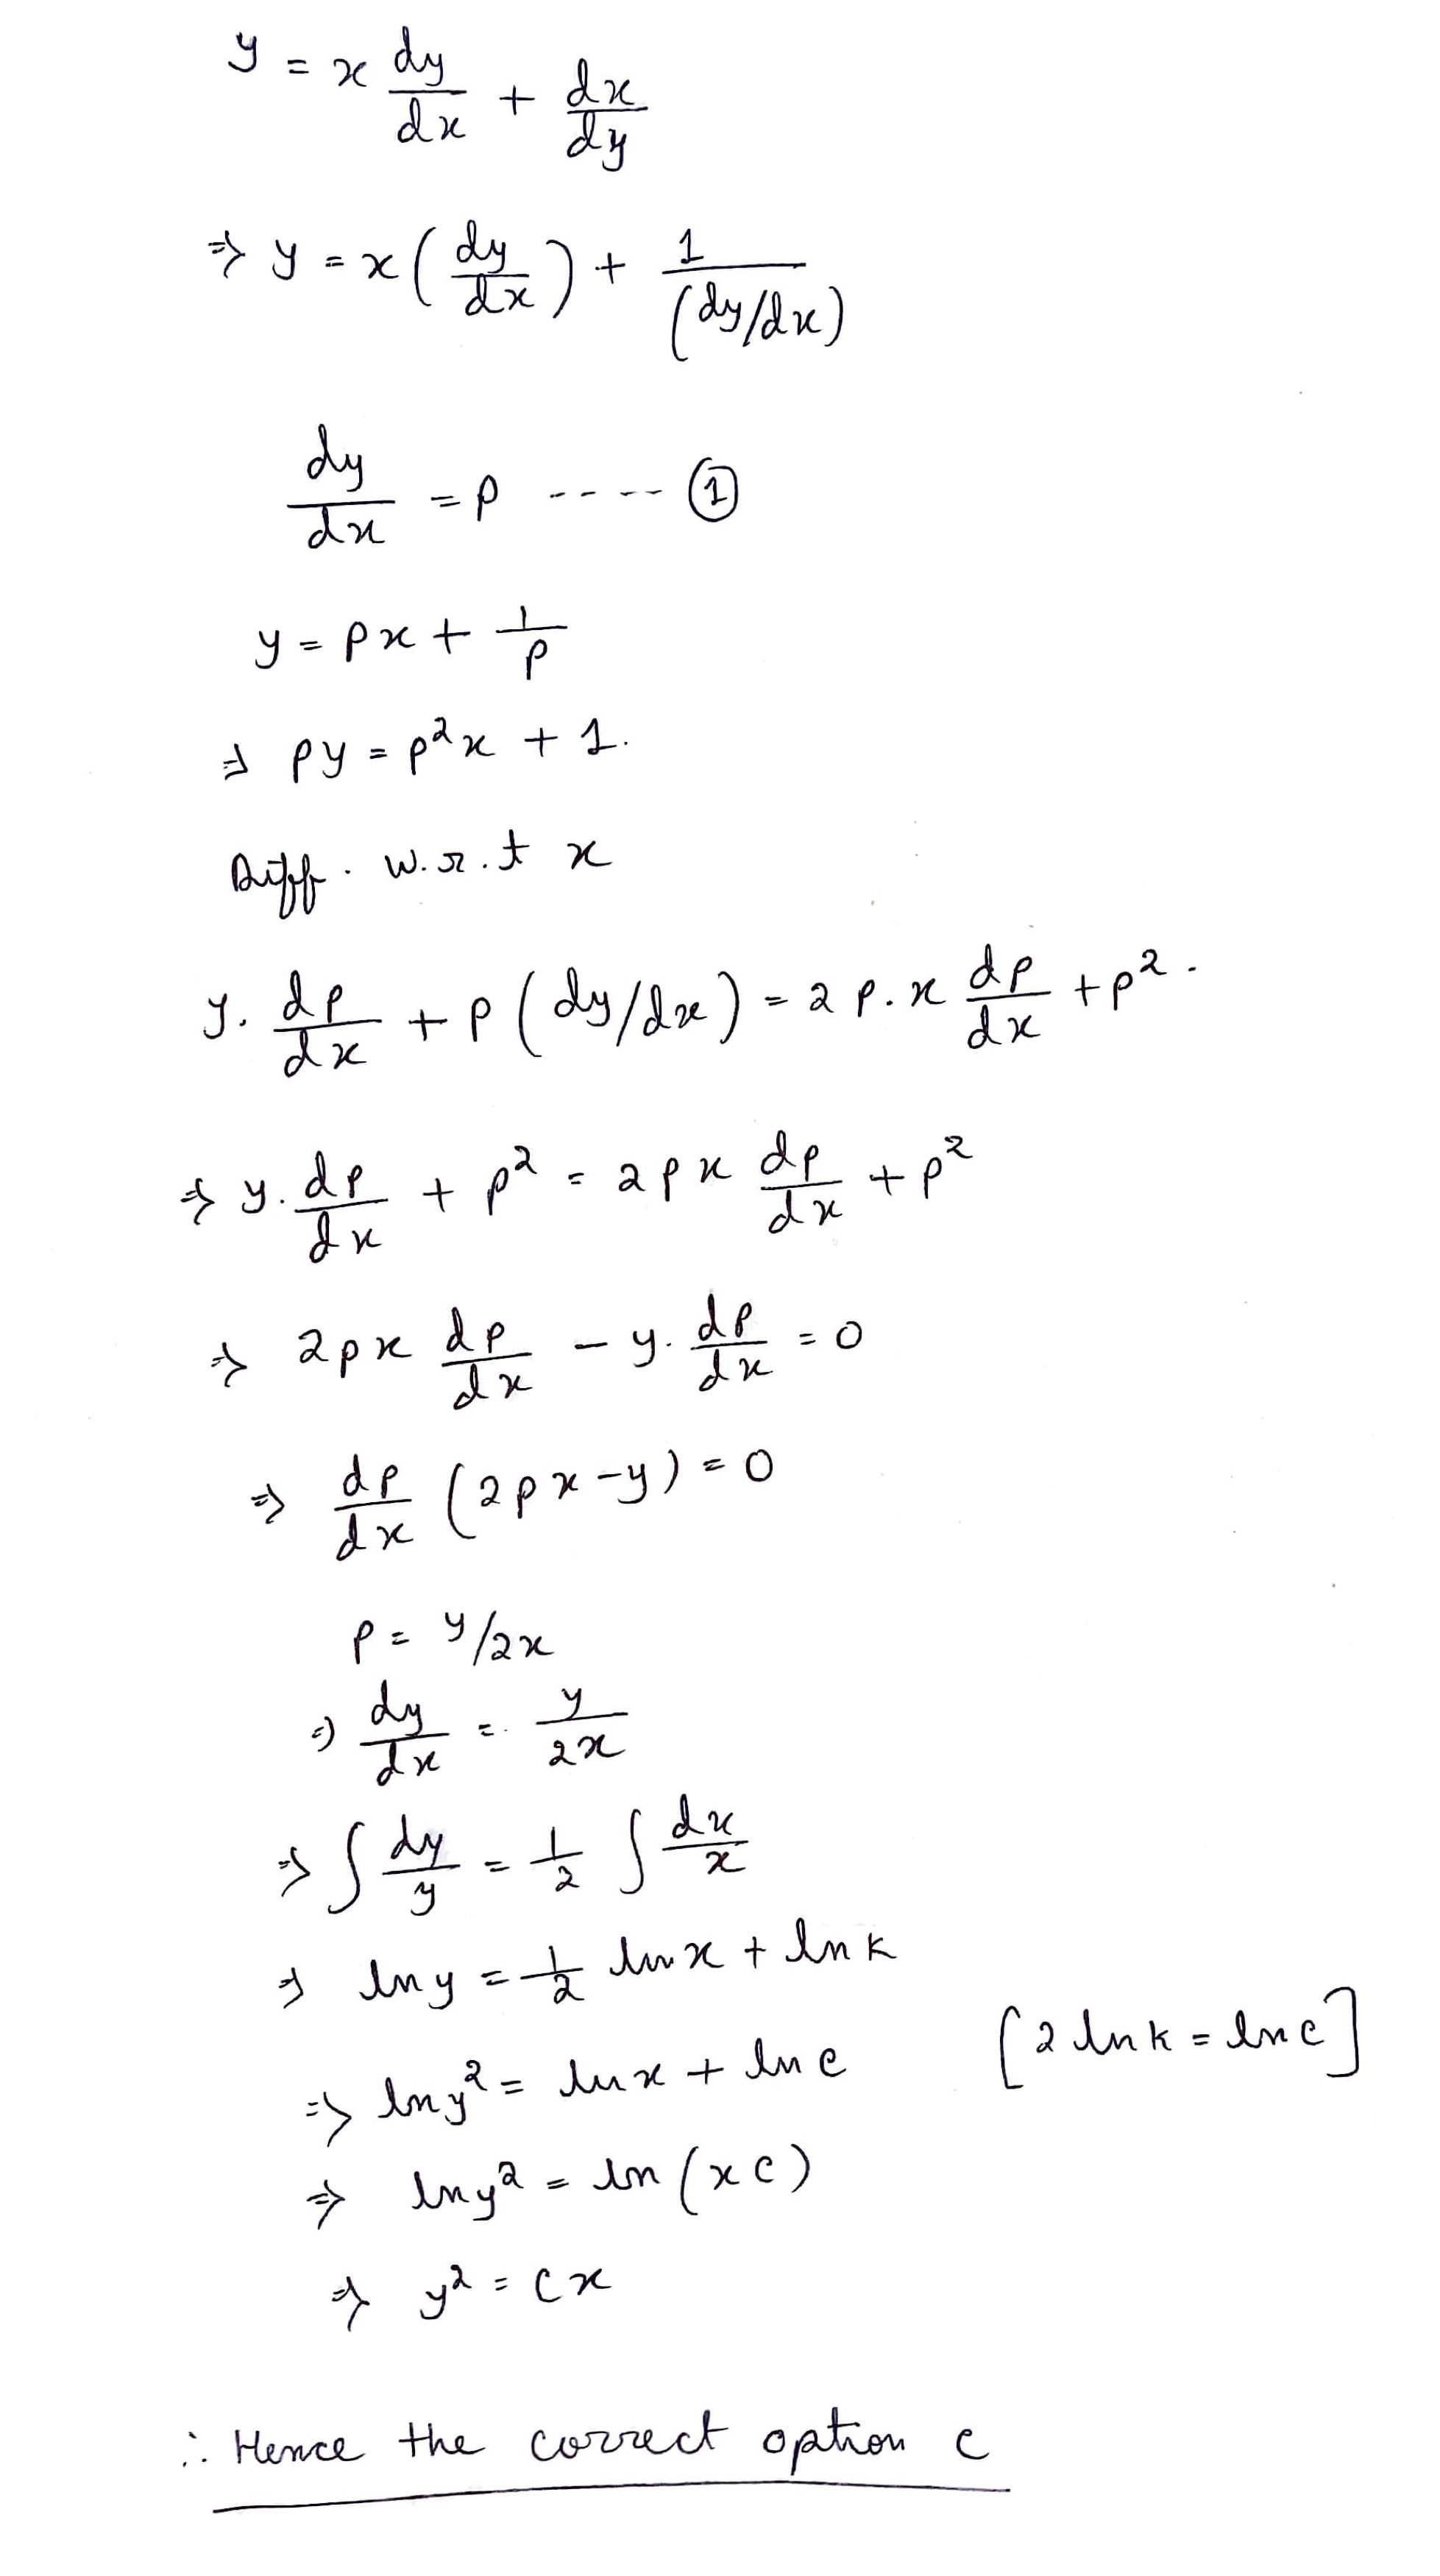 y = x dy/dx + dx/dy
⇒ y = x ( dy/dx ) + 1/(dy/dx)
dy/dx = p ---- ①
y = px + 1/p
⇒ py = p²x + 1.
Diff. w.r.t x
y. dp/dx + p (dy/dx) = 2 p.x dp/dx + p².
⇒ y. dp/dx + p² = 2px dp/dx + p²
⇒ 2px dp/dx - y. dp/dx = 0
⇒ dp/dx (2px - y) = 0
p = y/2x
⇒ dy/dx = y/2x
⇒ ∫ dy/y = 1/2 ∫ dx/x
⇒ ln y = 1/2 ln x + ln k
⇒ ln y² = ln x + ln c [2 ln k = ln c]
⇒ ln y² = ln (x c)
⇒ y² = cx
∴ Hence the correct option c